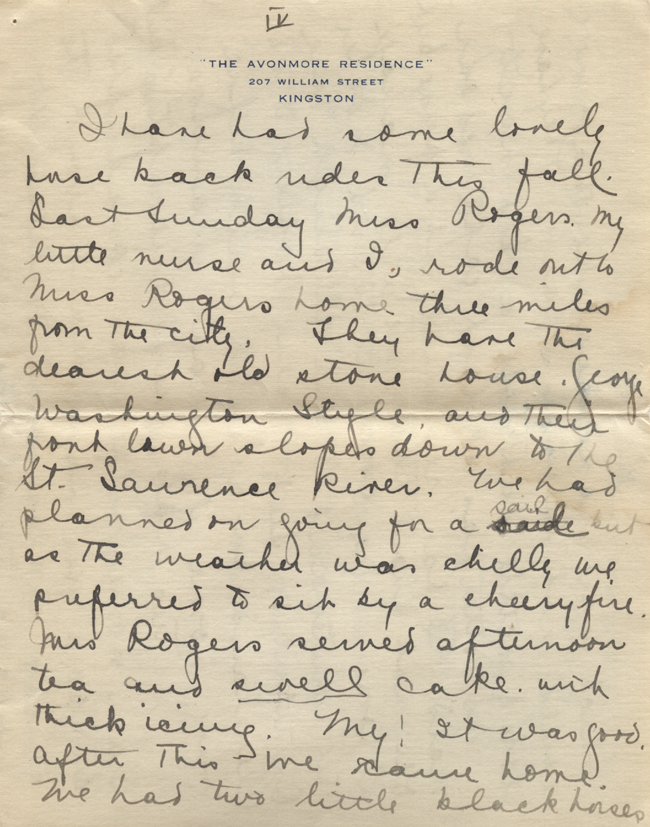 IV
"THE AVONMORE RESIDENCE"
207 WILLIAM STREET
KINGSTON
I have had some lovely
horse back rides this fall.
Last Sunday Miss Rogers. my
little nurse and I, rode out to
Miss Rogers home three miles
from the city. They have the
dearest old stone house. George
Washington Style and their
front lawn slopes down to the
St. Lawrence River. We had
planned on going for a sail but
as the weather was chilly we
preferred to sit by a cheery fire.
Mrs Rogers served afternoon
tea and swell cake. with
thick icing. My! It was good.
After this - we came home.
We had two little black horses